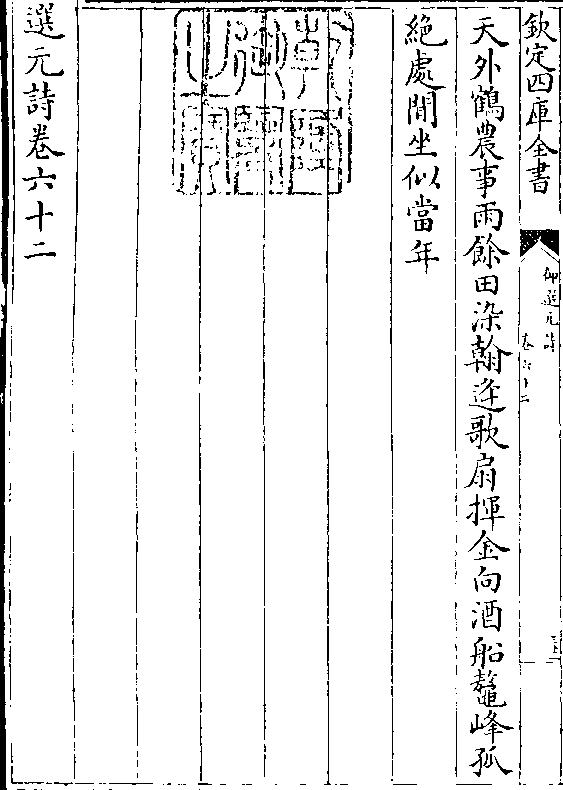 欽定四庫全書
御選元詩
卷六十二
天外鶴農事雨餘田染翰逢歌扇揮金向酒船鼇峰孤
絶處閒坐似當年
選元詩卷六十二